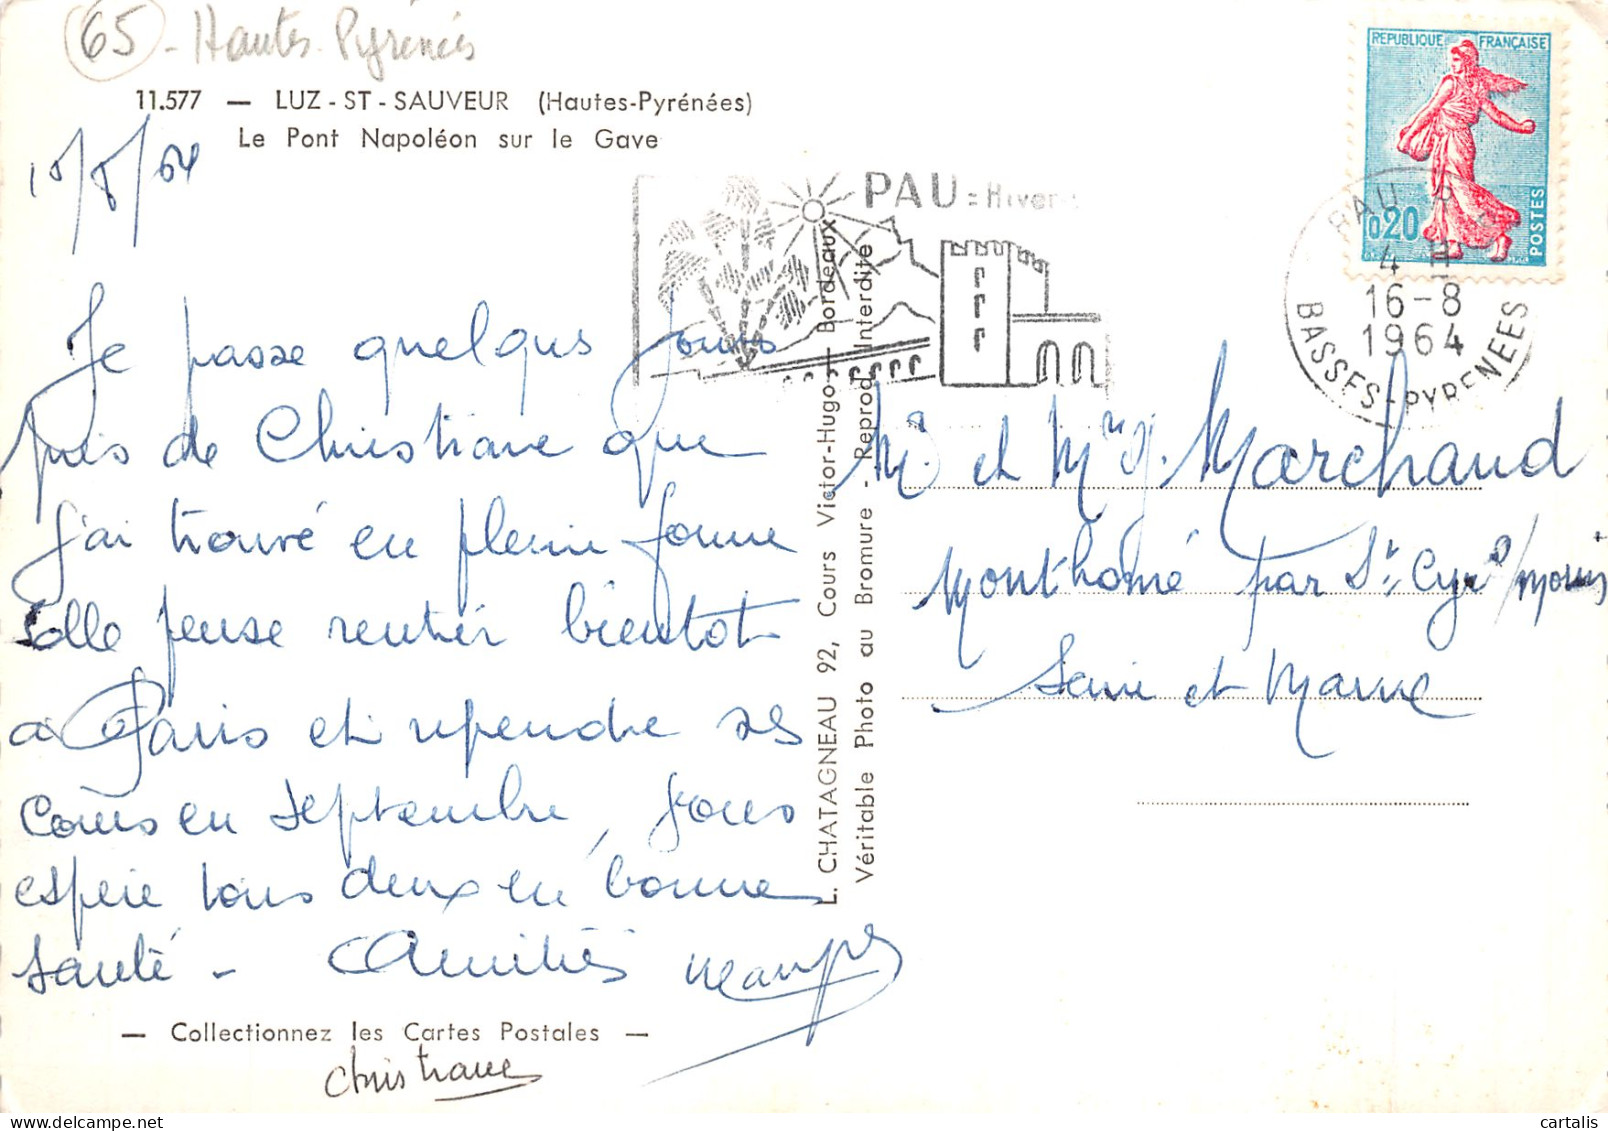 65 - Hautes-Pyrénées
11.577 — LUZ - ST - SAUVEUR (Hautes-Pyrénées)
Le Pont Napoléon sur le Gave
15/8/64
REPUBLIQUE FRANÇAISE
0,20
POSTES
PAU = Hiver
PAU
4
16-8
1964
BASSES-PYRENEES
Je passe quelqus jours
près de Christiane que
j'ai trouvé en pleine forme
elle pense rentrer bientot
a Paris et reprendre ses
cours en septembre, j'ous
espere tous deux en bonne
santé - Amitiés
Christiane
— Collectionnez les Cartes Postales —
L. CHATAGNEAU 92, Cours Victor-Hugo — Bordeaux
Véritable Photo au Bromure - Reprod. Interdite
M. et Mme J. Marchand
Monthomé par St Cyr s/morin
Seine et Marne
cartalis
delcampe.net